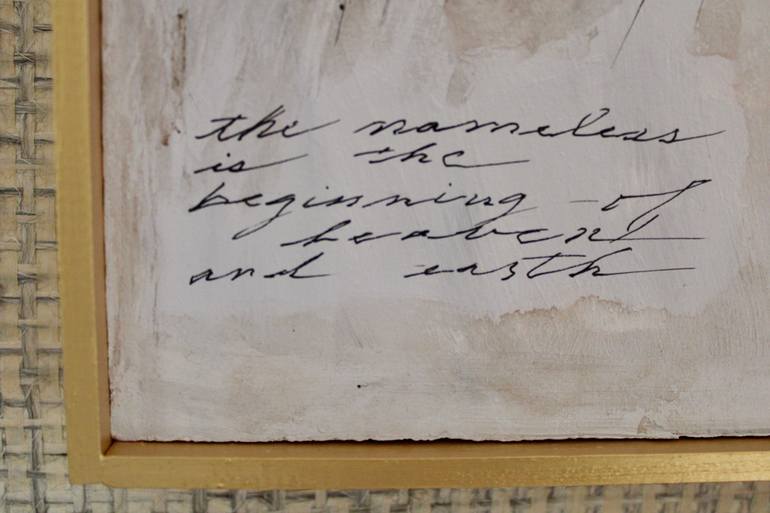 the nameless
is the
beginning of
heaven
and earth